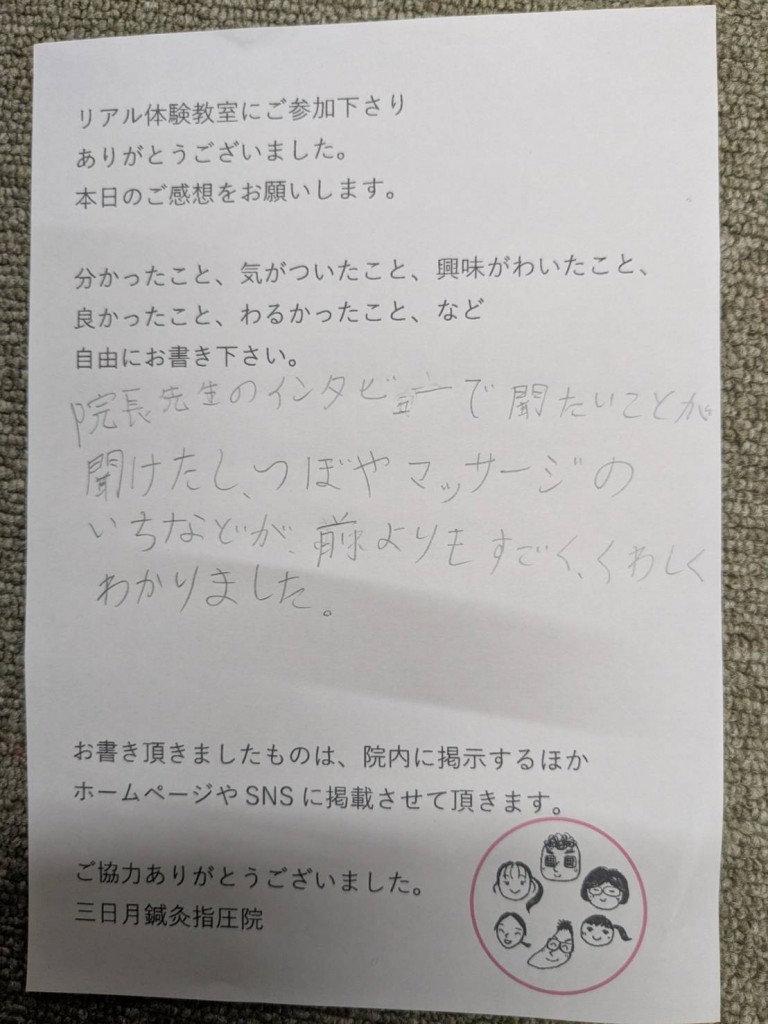 リアル体験教室にご参加下さり
ありがとうございました。
本日のご感想をお願いします。
分かったこと、気がついたこと、興味がわいたこと、
良かったこと、わるかったこと、など
自由にお書き下さい。
院長先生のインタビューで聞たいことが
聞けたし、つぼやマッサージの
いちなどが、前よりもすごく、くわしく
わかりました。
お書き頂きましたものは、院内に掲示するほか
ホームページや SNS に掲載させて頂きます。
ご協力ありがとうございました。
三日月鍼灸指圧院